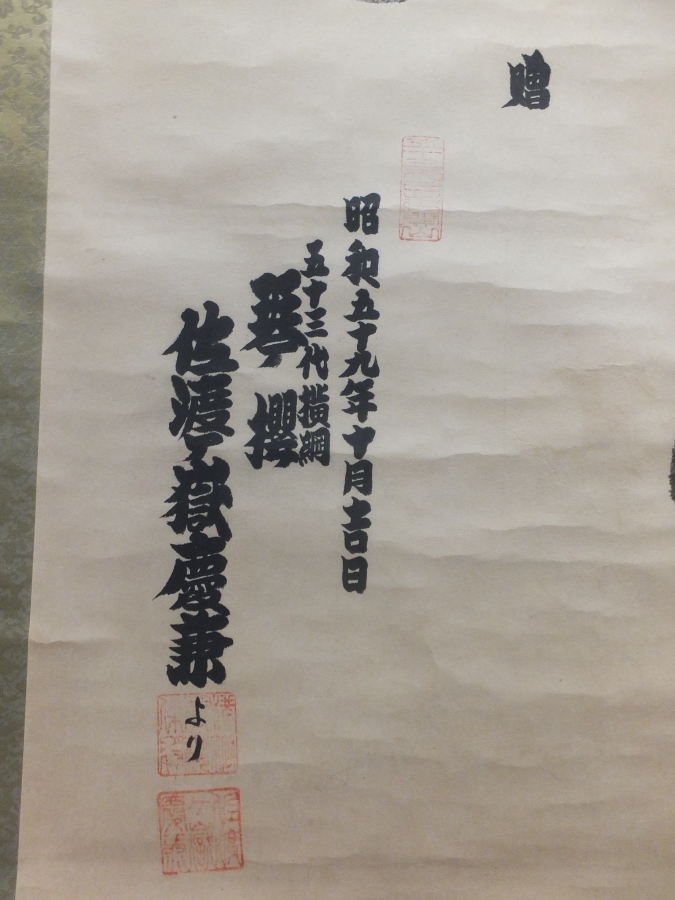 贈
昭和五十九年十月吉日
五十三代横綱
琴櫻
佐渡ヶ嶽慶兼
より